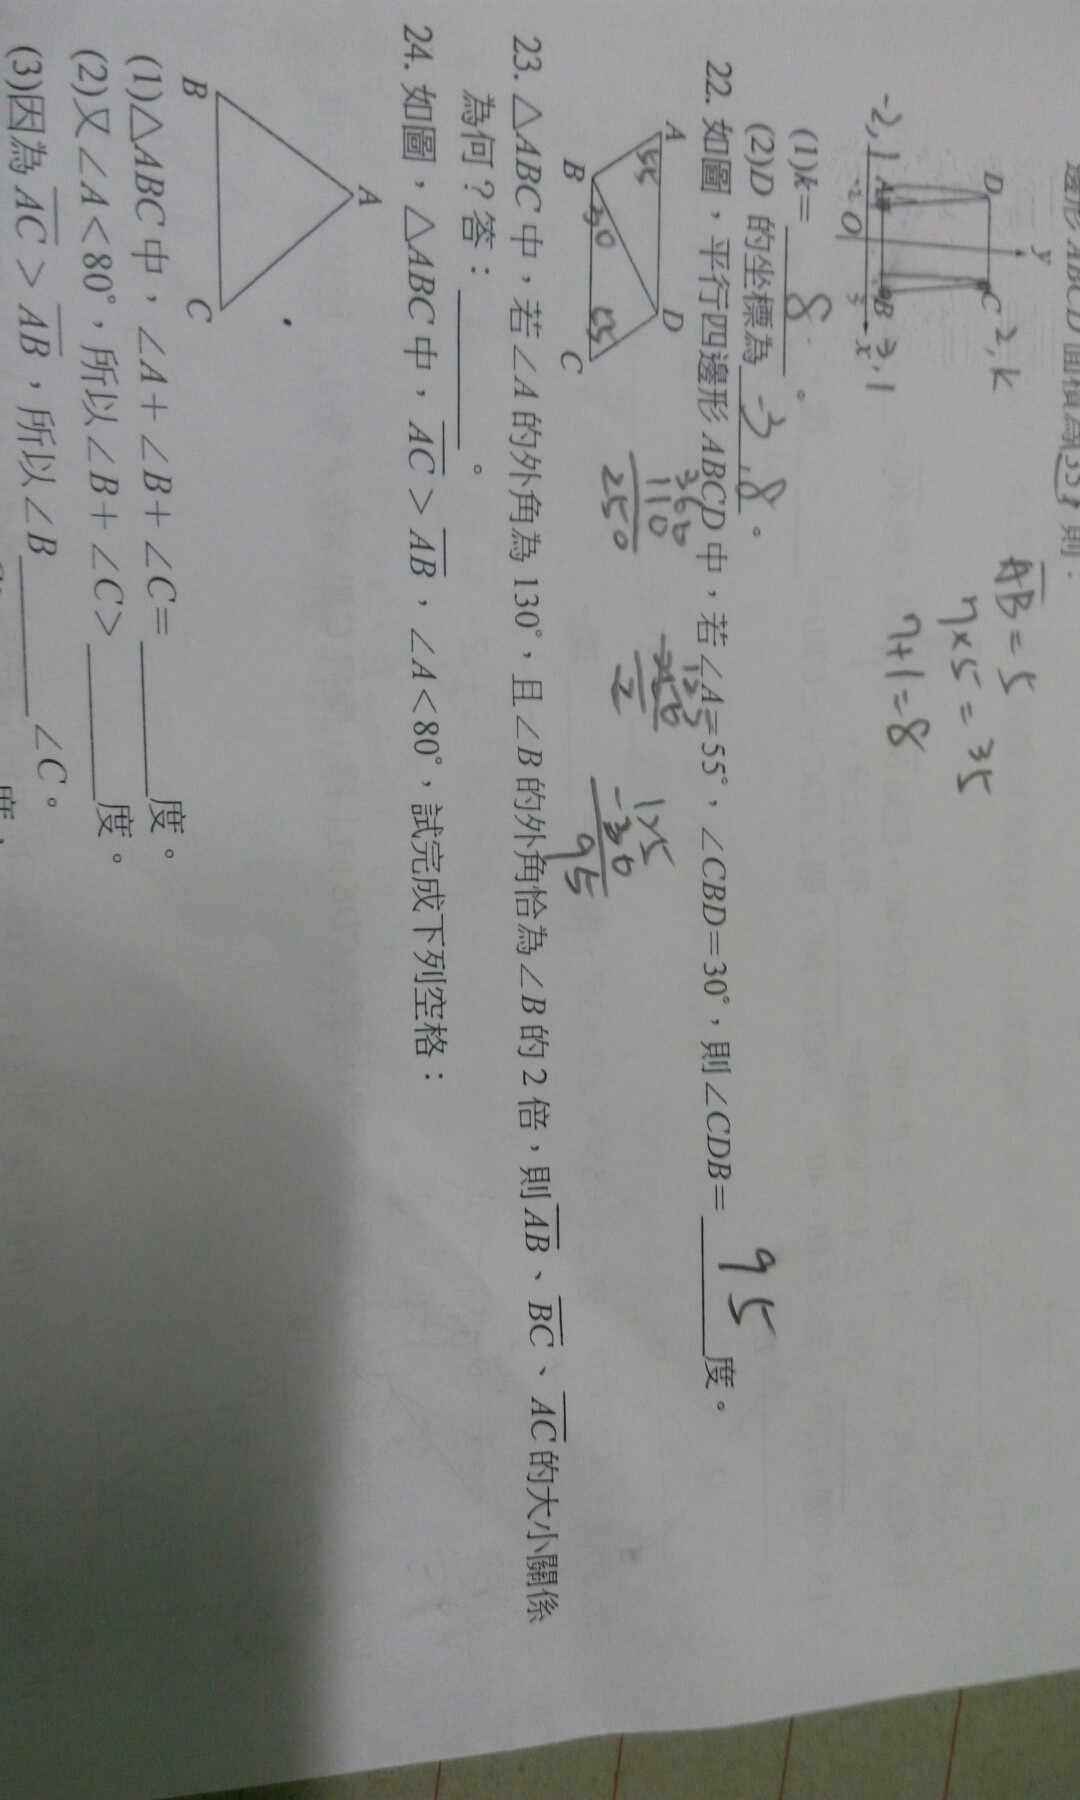 邊形ABCD面積為35，則：
y
D
C 2,k
-2,1 A
B 3,1
-2 O 3 x
AB=5
7×5=35
7+1=8
(1)k= 8 。
(2)D 的坐標為 -3,8 。
22. 如圖，平行四邊形ABCD中，若∠A=55°，∠CBD=30°，則∠CDB= 95 度。
A D
55
B 30 55 C
360
110
250
125
250
2
125
-30
95
23. △ABC中，若∠A的外角為130°，且∠B的外角恰為∠B的2倍，則AB、BC、AC的大小關係
為何？答：＿＿＿＿＿。
24. 如圖，△ABC中，AC＞AB，∠A<80°，試完成下列空格：
A
B C
(1)△ABC中，∠A+∠B+∠C=＿＿＿＿＿度。
(2)又∠A<80°，所以∠B+∠C>＿＿＿＿＿度。
(3)因為AC＞AB，所以∠B＿＿＿＿＿∠C。
度，